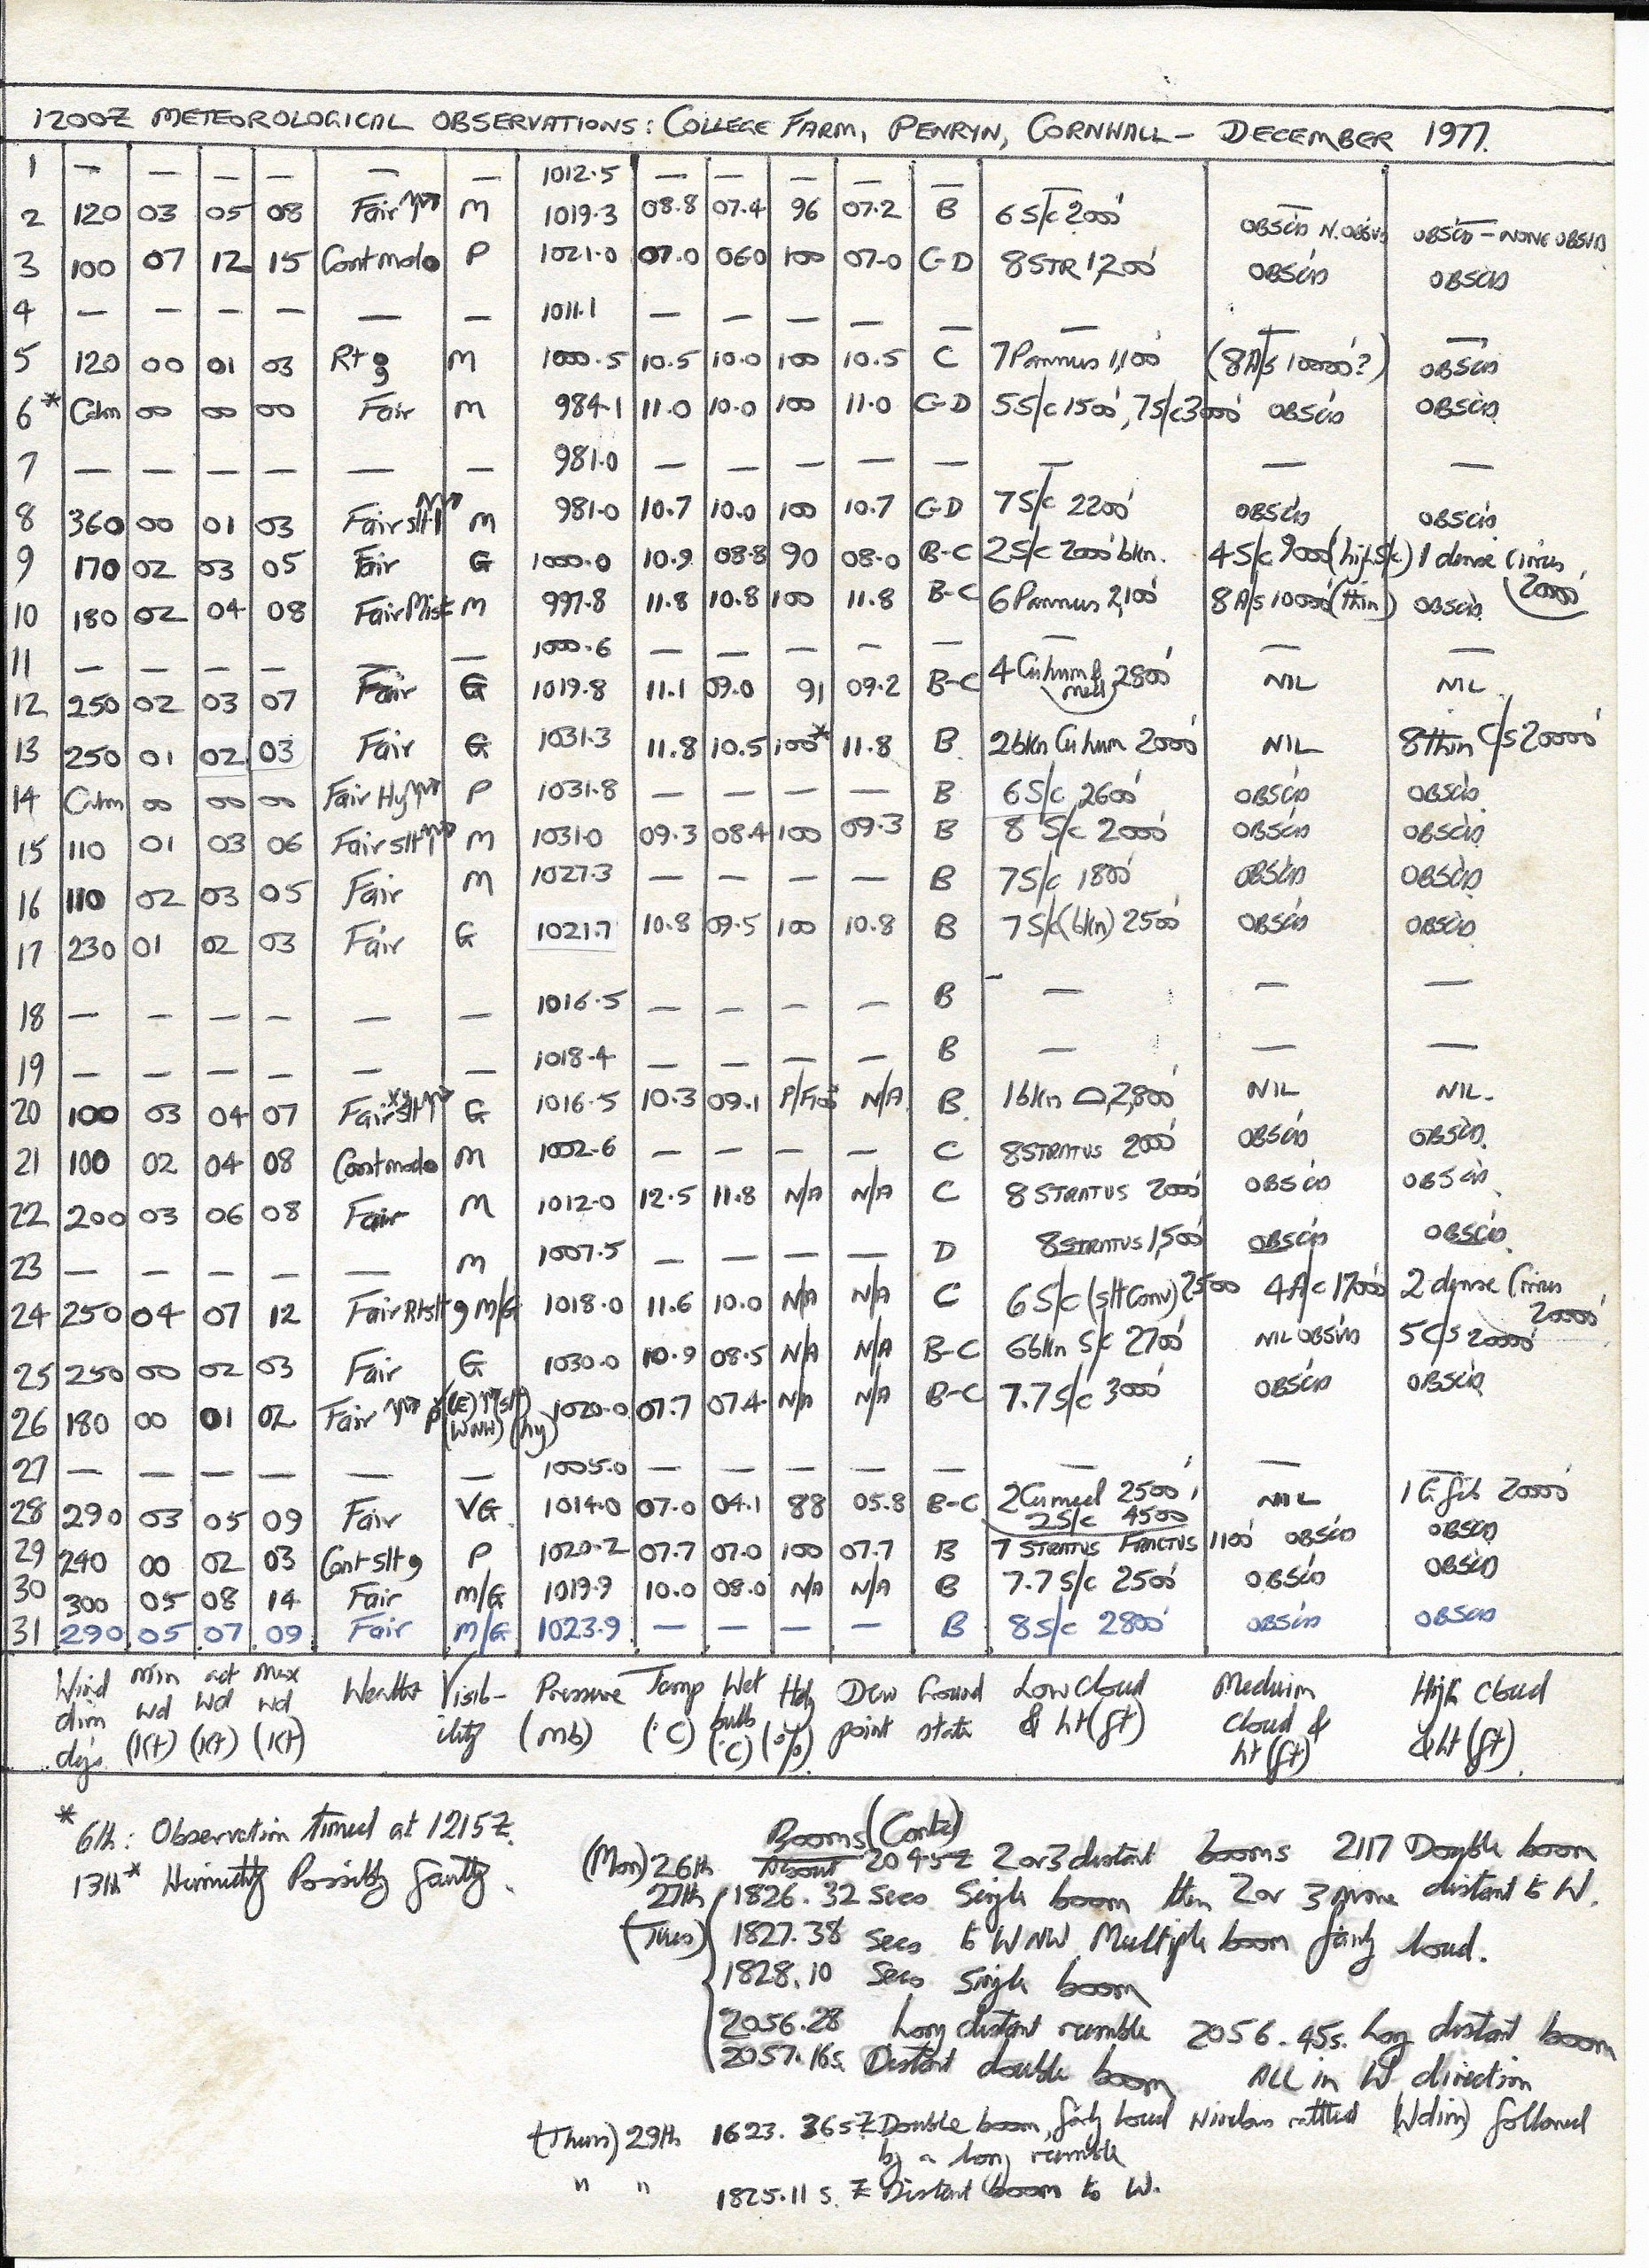 1200Z METEOROLOGICAL OBSERVATIONS: COLLEGE FARM, PENRYN, CORNWALL – DECEMBER 1977.
1 — — — — — — 1012.5 — — — — — — — —
2 120 03 05 08 Fair M 1019.3 08.8 07.4 96 07.2 B 6 S/c 2000' OBSC'D N.OBSVD OBSC'D – NONE OBSVD
3 100 07 12 15 Cont mod P 1021.0 07.0 060 100 07.0 C-D 8 STR 1,200' OBSC'D OBSC'D
4 — — — — — — 1011.1 — — — — — — — —
5 120 00 01 03 M 1000.5 10.5 10.0 100 10.5 C 7 Pannus 1,100' (8 A/s 10000'?) OBSC'D
6* Calm 00 00 00 Fair M 984.1 11.0 10.0 100 11.0 C-D 5 S/c 1500', 7 S/c 3000' OBSC'D OBSC'D
7 — — — — — — 981.0 — — — — — — — —
8 360 00 01 03 Fair slt M 981.0 10.7 10.0 100 10.7 C-D 7 S/c 2200' OBSC'D OBSC'D
9 170 02 03 05 Fair G 1000.0 10.9 08.8 90 08.0 B-C 2 S/c 2000' bkn. 4 S/c 9000' (high S/c) 1 dense Cirrus 20000'
10 180 02 04 08 Fair Mist M 997.8 11.8 10.8 100 11.8 B-C 6 Pannus 2,100' 8 A/s 10000' (thin) OBSC'D
11 — — — — — — 1000.6 — — — — — — — —
12 250 02 03 07 Fair G 1019.8 11.1 09.0 91 09.2 B-C 4 Cu hum & med 2800' NIL NIL
13 250 01 02 03 Fair G 1031.3 11.8 10.5 100* 11.8 B 2 bkn Cu hum 2000' NIL 8 thin C/s 20000'
14 Calm 00 00 00 Fair Hy P 1031.8 — — — — B 6 S/c 2600' OBSC'D OBSC'D
15 110 01 03 06 Fair slt M 1031.0 09.3 08.4 100 09.3 B 8 S/c 2000' OBSC'D OBSC'D
16 110 02 03 05 Fair M 1027.3 — — — — B 7 S/c 1800' OBSC'D OBSC'D
17 230 01 02 03 Fair G 1021.7 10.8 09.5 100 10.8 B 7 S/c (bkn) 2500' OBSC'D OBSC'D
18 — — — — — — 1016.5 — — — — B — — —
19 — — — — — — 1018.4 — — — — B — — —
20 100 03 04 07 Fair slt G 1016.5 10.3 09.1 N/A B 1 bkn 2,800' NIL NIL.
21 100 02 04 08 Cont mod M 1002.6 — — — — C 8 STRATUS 2000' OBSC'D OBSC'D
22 200 03 06 08 Fair M 1012.0 12.5 11.8 N/A N/A C 8 STRATUS 2000' OBSC'D OBSC'D
23 — — — — — M 1007.5 — — — — D 8 STRATUS 1,500' OBSC'D OBSC'D
24 250 04 07 12 Fair M/G 1018.0 11.6 10.0 N/A N/A C 6 S/c (slt Conv) 2500 4 A/c 17000' 2 dense Cirrus 20000'
25 250 00 02 03 Fair G 1030.0 10.9 08.5 N/A N/A B-C 6 bkn S/c 2700' NIL OBSVD 5 C/s 20000'
26 180 00 01 02 Fair P (E) (slt) (WNW) (hy) 1020.0 07.7 07.4 N/A N/A B-C 7.7 S/c 3000' OBSC'D OBSC'D
27 — — — — — — 1005.0 — — — — — — — —
28 290 03 05 09 Fair VG 1014.0 07.0 04.1 88 05.8 B-C 2 Cu med 2500', 2 S/c 4500 NIL 1 Ci fib 20000'
29 240 00 02 03 Cont slt P 1020.2 07.7 07.0 100 07.7 B 7 STRATUS FRACTUS 1100' OBSC'D OBSC'D
30 300 05 08 14 Fair M/G 1019.9 10.0 08.0 N/A N/A B 7.7 S/c 2500' OBSC'D OBSC'D
31 290 05 07 09 Fair M/G 1023.9 — — — — B 8 S/c 2800' OBSC'D OBSC'D
Wind dirn dgs Min Wd (Kt) act Wd (Kt) Max Wd (Kt) Weather Visib-ility Pressure (mb) Temp (°C) Wet bulb (°C) Hdy (%) Dew point Ground state Low Cloud & ht (ft) Medium Cloud & ht (ft) High Cloud & ht (ft)
* 6th: Observation timed at 1215Z.
13th* Humidity Possibly faulty.
Booms (Contd)
(Mon) 26th About 2045Z 2 or 3 distant booms 2117 Double boom
27th 1826.32 secs Single boom then 2 or 3 more distant to W.
(Tues) 1827.38 secs to WNW Multiple boom fairly loud.
1828.10 secs Single boom
2056.28 Long distant rumble 2056.45s. Long distant boom
2057.16s. Distant double boom ALL in W direction
(Thurs) 29th 1623.36s Z Double boom, fairly loud Windows rattled (W dirn) followed
by a long rumble
" " 1825.11 s. Z Distant boom to W.